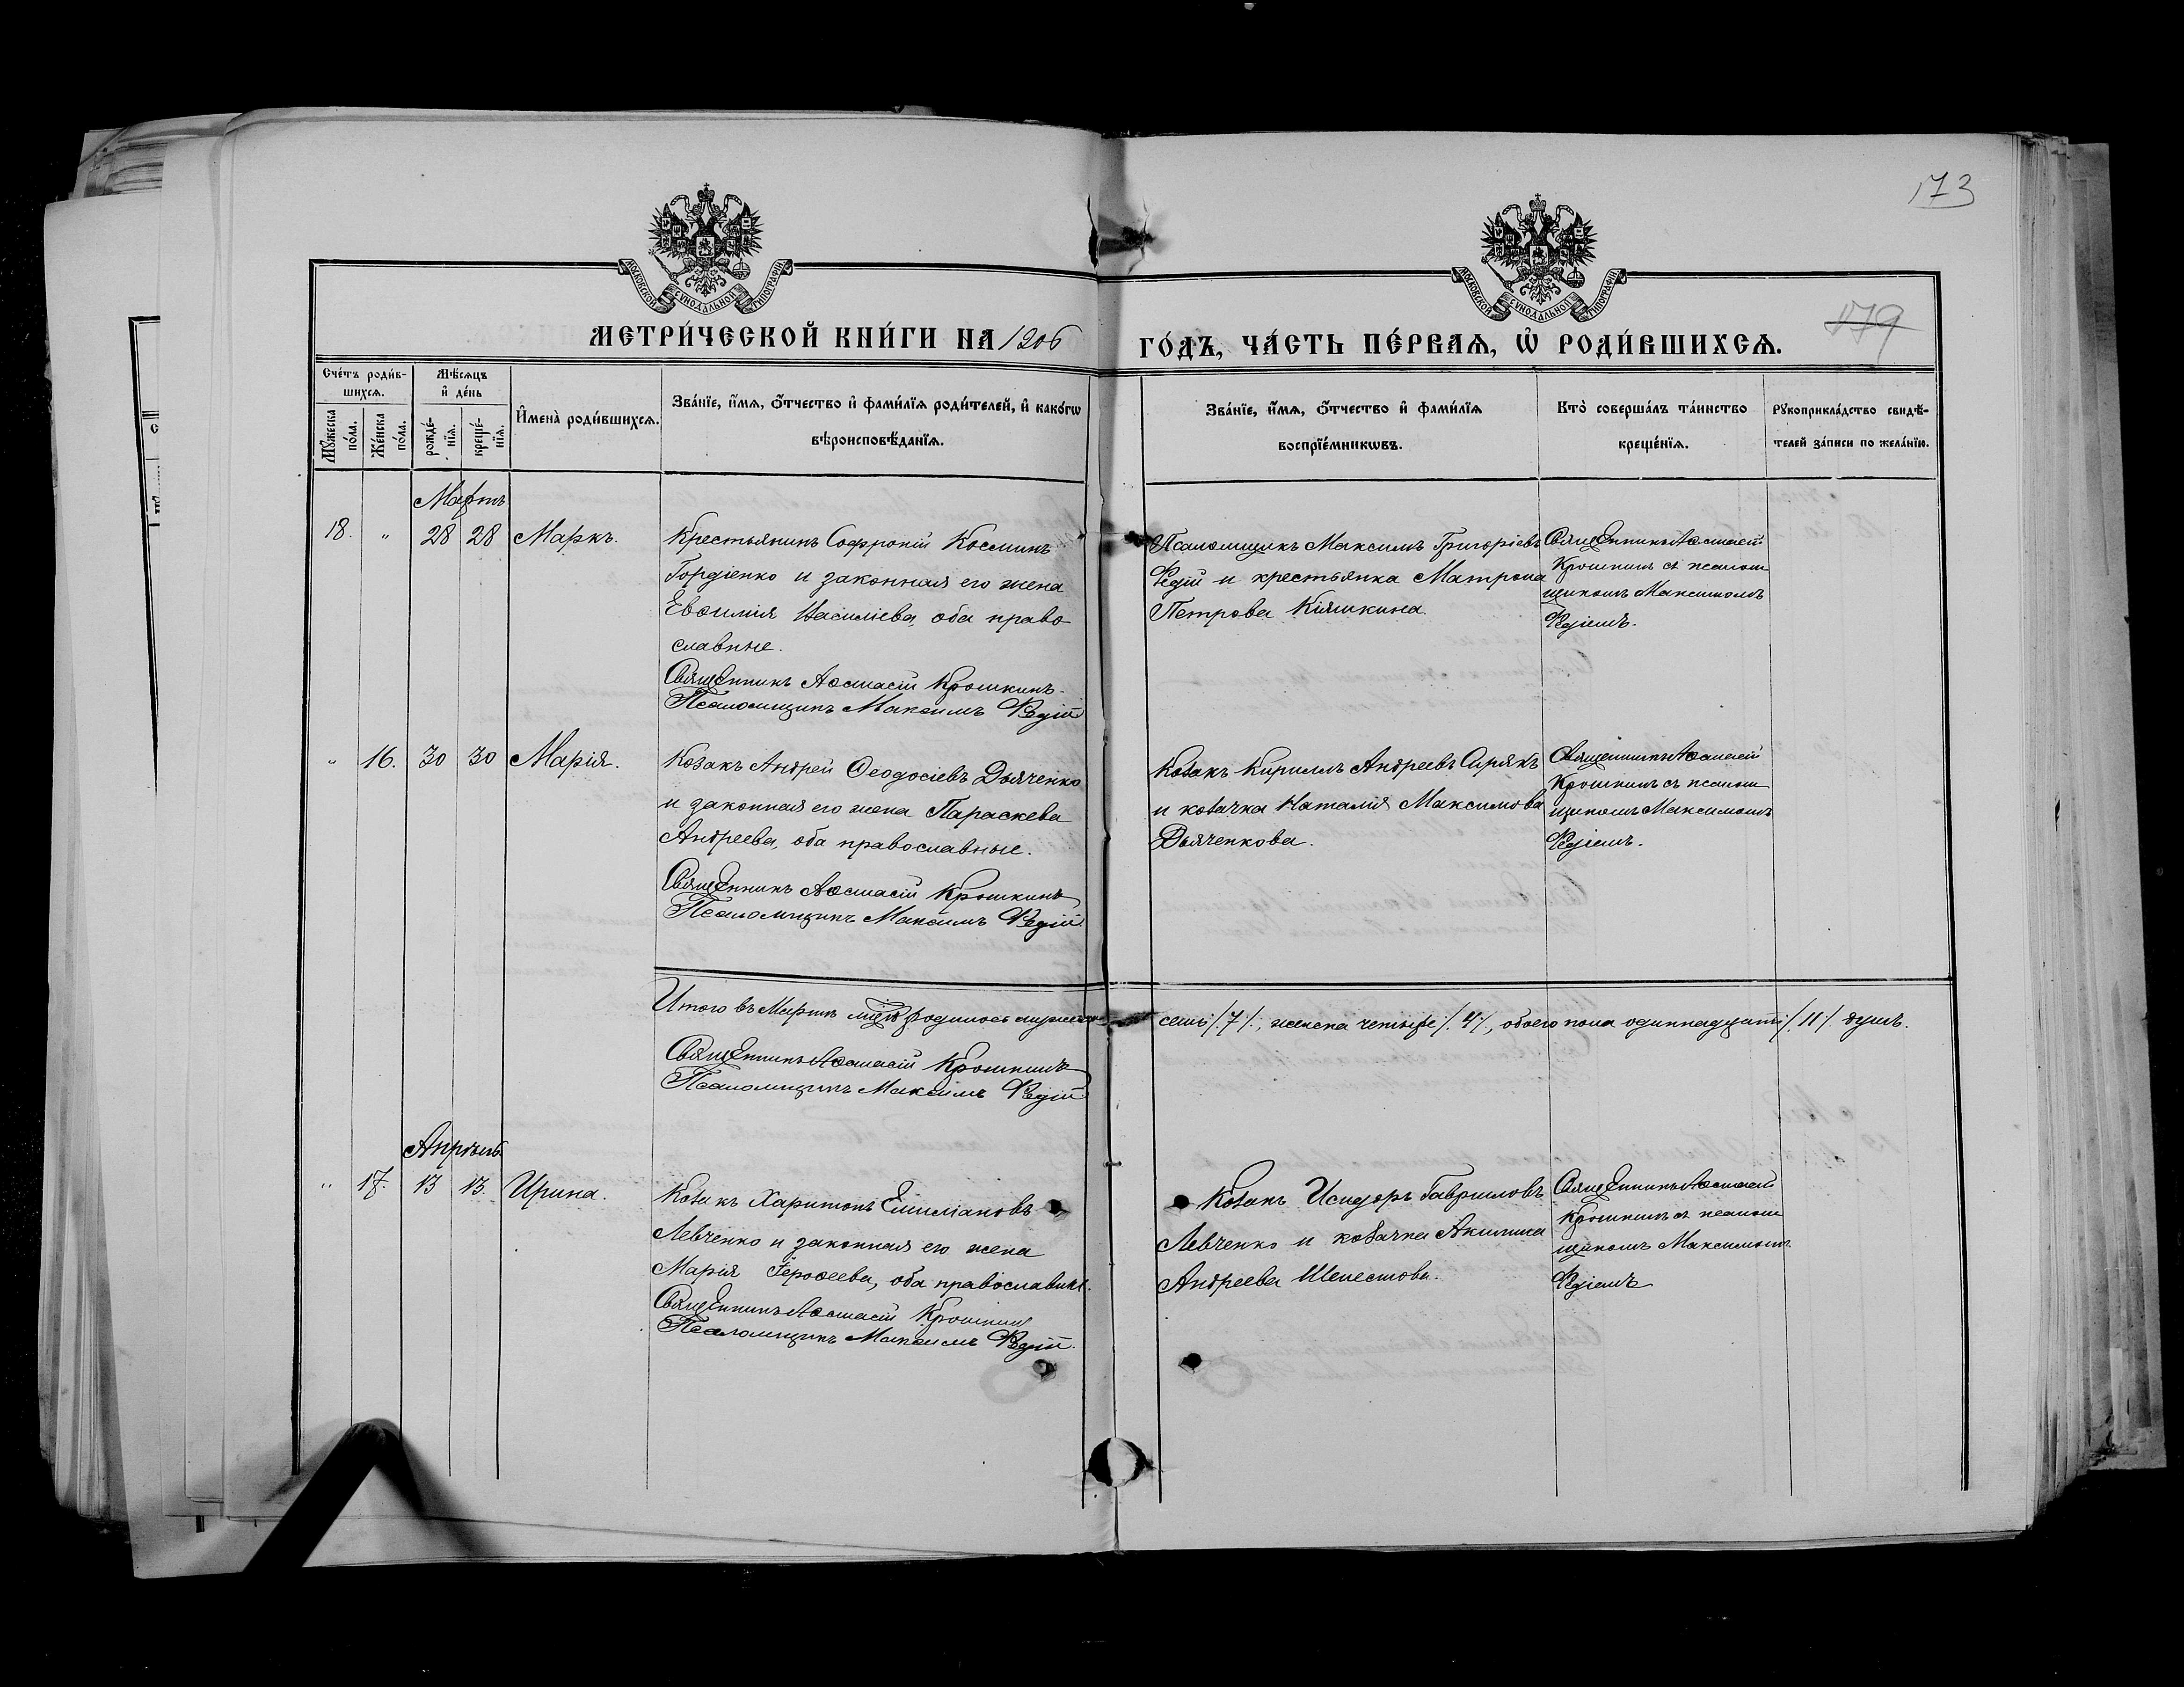 173
МОСКОВСКОЙ СѴНОДАЛЬНОЙ ТИПОГРАФІИ
МОСКОВСКОЙ СѴНОДАЛЬНОЙ ТИПОГРАФІИ
МЕТРИ́ЧЕСКОЙ КНИ́ГИ НА 1906 ГО́ДЪ, ЧА́СТЬ ПЕ́РВАѦ, Ѡ҆ РОДИ́ВШИХСѦ.
179
Сче́тъ роди́в-
шихсѧ.
Мꙋ́жеска
по́ла.
Же́нска
по́ла.
Мѣ́сѧцъ
и҆ де́нь
рожде́-
нїѧ.
креще́-
нїѧ.
И҆мена̀ роди́вшихсѧ.
Зва́нїе, и҆́мѧ, ѻ҆́тчество и҆ фами́лїѧ роди́телей, и҆ како́гѡ
вѣроисповѣ́данїѧ.
Зва́нїе, и҆́мѧ, ѻ҆́тчество и҆ фами́лїѧ
воспрїе́мникѡвъ.
Кто̀ соверша́лъ та́инство
креще́нїѧ.
Рꙋкоприкла́дство свидѣ́-
телей за́писи по жела́нїю.
Мартъ
18. " 28 28 Маркъ.
Крестьянинъ Софроній Косминъ
Гордіенко и законная его жена
Евѳимія Васильева, оба право-
славные.
Священникъ Аѳанасій Крошкинъ
Псаломщикъ Максимъ Редій
Псаломщикъ Максимъ Григорьевъ
Редій и крестьянка Матрона
Петрова Кіяшкина.
Священникъ Аѳанасій
Крошкинъ съ псалом
щикомъ Максимомъ
Редіемъ.
" 16. 30 30 Марія.
Козакъ Андрей Ѳеодосіевъ Дьяченко
и законная его жена Параскева
Андреева, оба православные.
Священникъ Аѳанасій Крошкинъ
Псаломщикъ Максимъ Редій
Козакъ Кириллъ Андреевъ Сирякъ
и козачка Наталія Максимова
Дьяченкова.
Священникъ Аѳанасій
Крошкинъ съ псалом
щикомъ Максимомъ
Редіемъ.
Итого въ Мартѣ м-цѣ родилось мужеска семь /.7/., женска четыре /.4/., обоего пола одиннадцать /.11/. душъ.
Священникъ Аѳанасій Крошкинъ
Псаломщикъ Максимъ Редій
Апрѣль
" 17. 13 13. Ирина.
Козакъ Харитонъ Емиліановъ
Левченко и законная его жена
Марія Іероѳеева, оба православные.
Священникъ Аѳанасій Крошкинъ
Псаломщикъ Максимъ Редій.
Козакъ Исидоръ Гавриловъ
Левченко и козачка Акилина
Андреева Шелестова.
Священникъ Аѳанасій
Крошкинъ съ псалом
щикомъ Максимомъ
Редіемъ